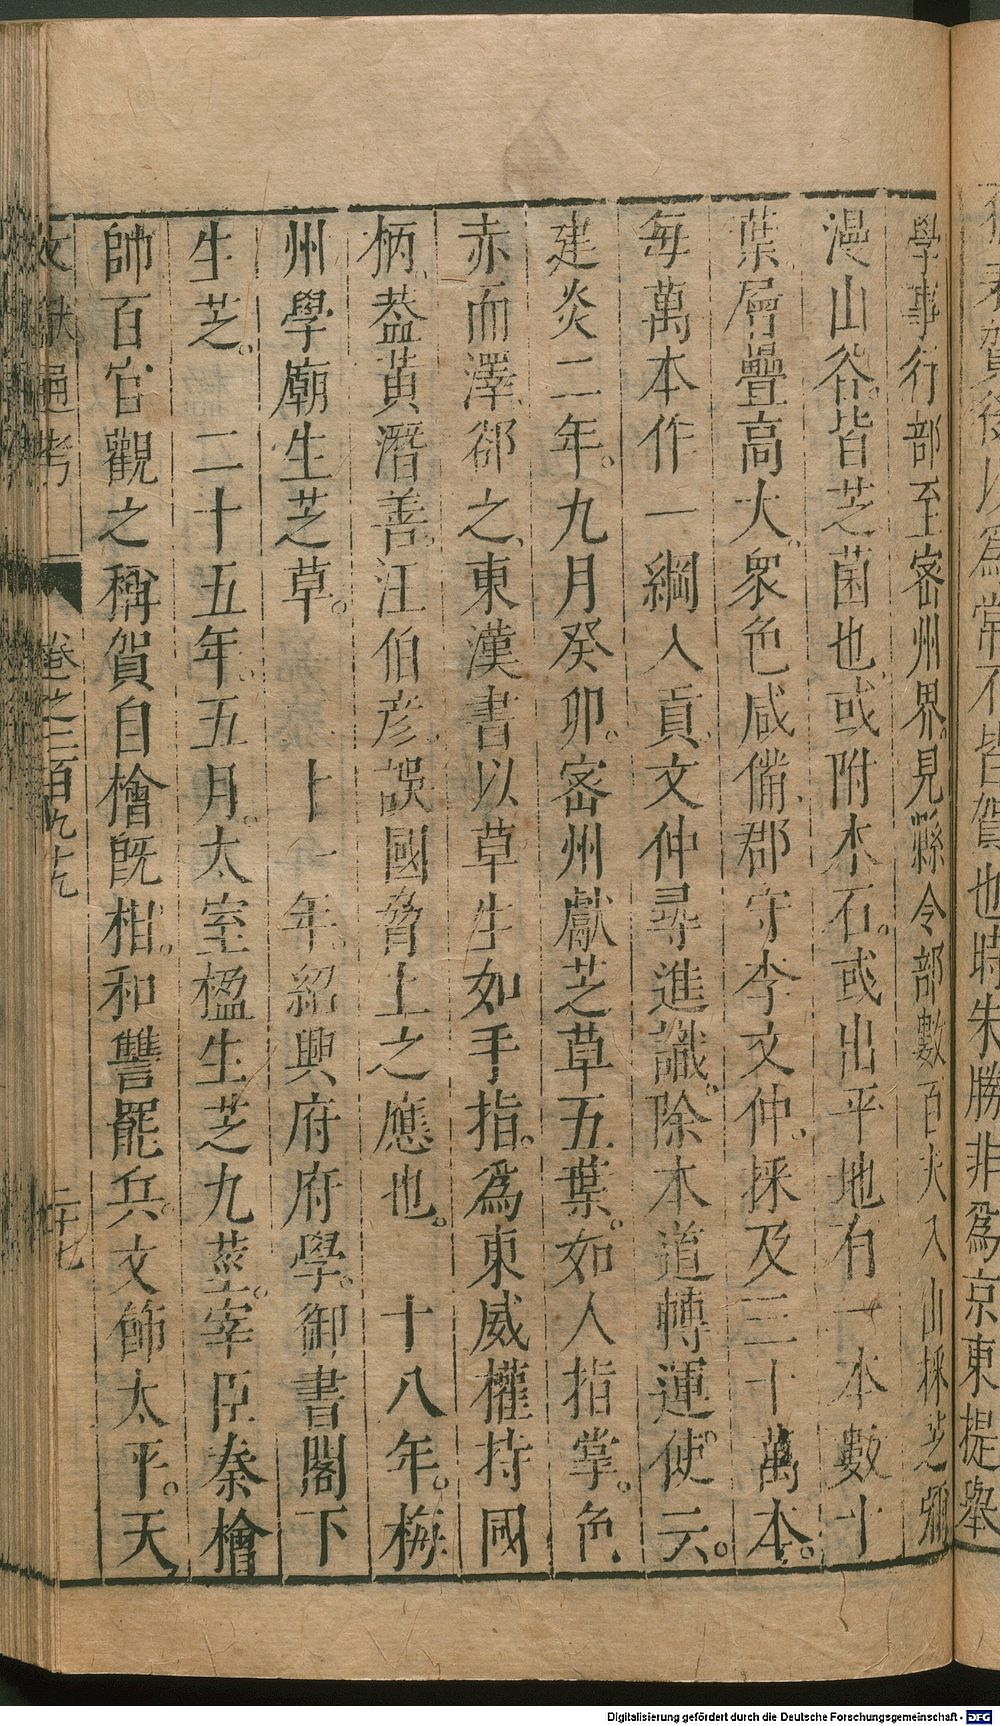 賀後以爲常不皆賀也時朱勝非爲京東提舉
學事行部至密州界見縣令部數百夫入山採芝彌
漫山谷皆芝菌也或附木石或出平地有一本數十
葉層疊高大衆色咸備郡守李文仲採及三十萬本
每萬本作一綱入貢文仲尋進識除本道轉運使云
建炎二年九月癸卯密州獻芝草五葉如人指掌色
赤而澤郤之東漢書以草生如手指爲東威權持國
柄葢黃潛善汪伯彦誤國脅上之應也 十八年梅
州學廟生芝草 十一年紹興府府學御書閣下
生芝 二十五年五月太室楹生芝九莖宰臣秦檜
帥百官觀之稱賀自檜旣相和讐罷兵文飾太平天
文獻通考 卷之二百九十九 二十七
Digitalisierung gefördert durch die Deutsche Forschungsgemeinschaft - DFG